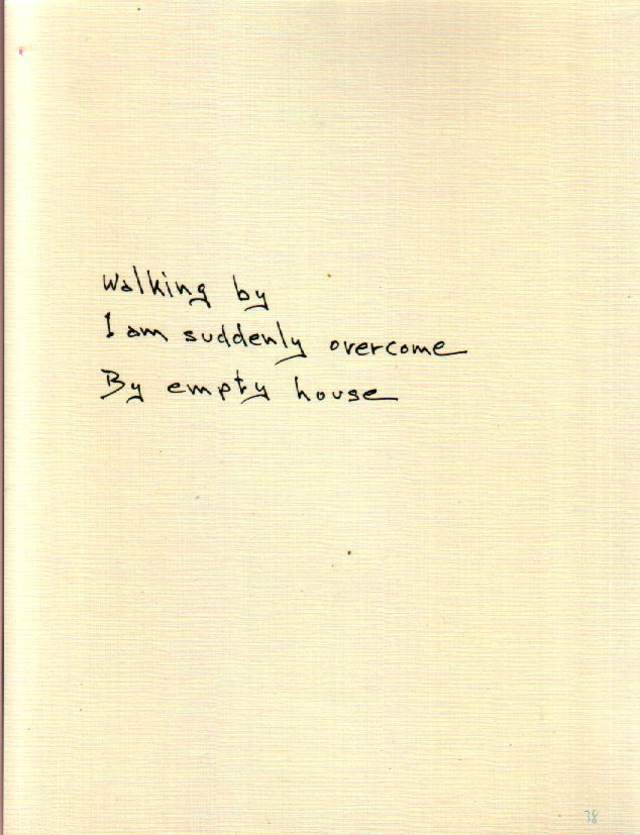 Walking by
I am suddenly overcome
By empty house
38